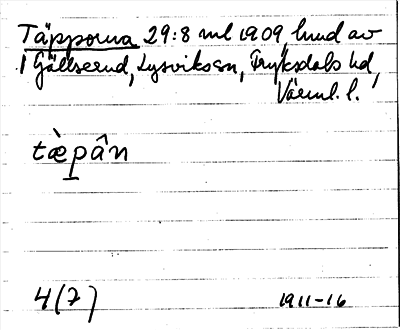 Täpporna 29:8 ml 1909 hmd av
1 Gällserud, Lysviks sn, Fryksdals hd,
Värml. l.
tæ̀pân
4(7) 1911-16